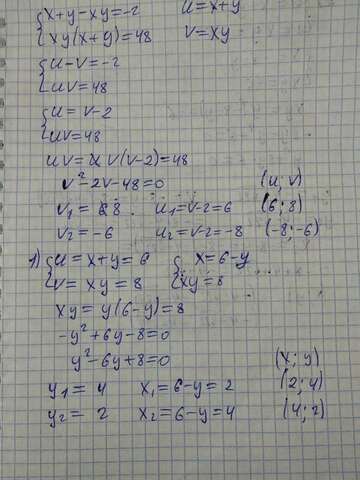 {x+y-xy=-2 u=x+y
{xy(x+y)=48 v=xy
{u-v=-2
{uv=48
{u=v-2
{uv=48
uv= v(v-2)=48
v²-2v-48=0 (u; v)
v₁=8 u₁=v-2=6 (6; 8)
v₂=-6 u₂=v-2=-8 (-8;-6)
1) {u=x+y=6 {x=6-y
{v=xy=8 {xy=8
xy=y(6-y)=8
-y²+6y-8=0
y²-6y+8=0 (x; y)
y₁=4 x₁=6-y=2 (2; 4)
y₂=2 x₂=6-y=4 (4; 2)